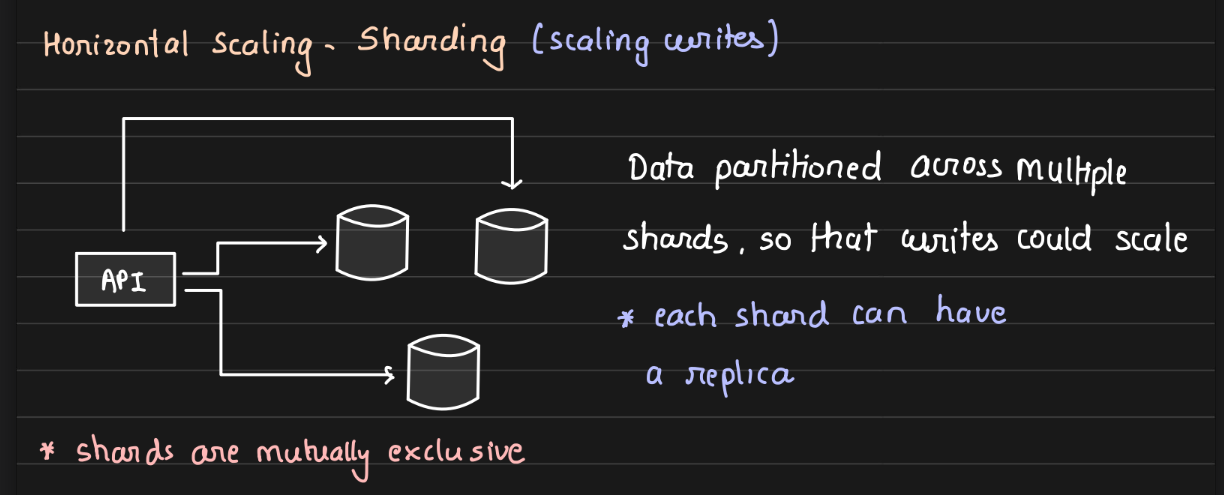 Horizontal Scaling - Sharding (scaling writes)
Data partitioned across multiple
shards, so that writes could scale
API
* each shard can have
a replica
* shards are mutually exclusive